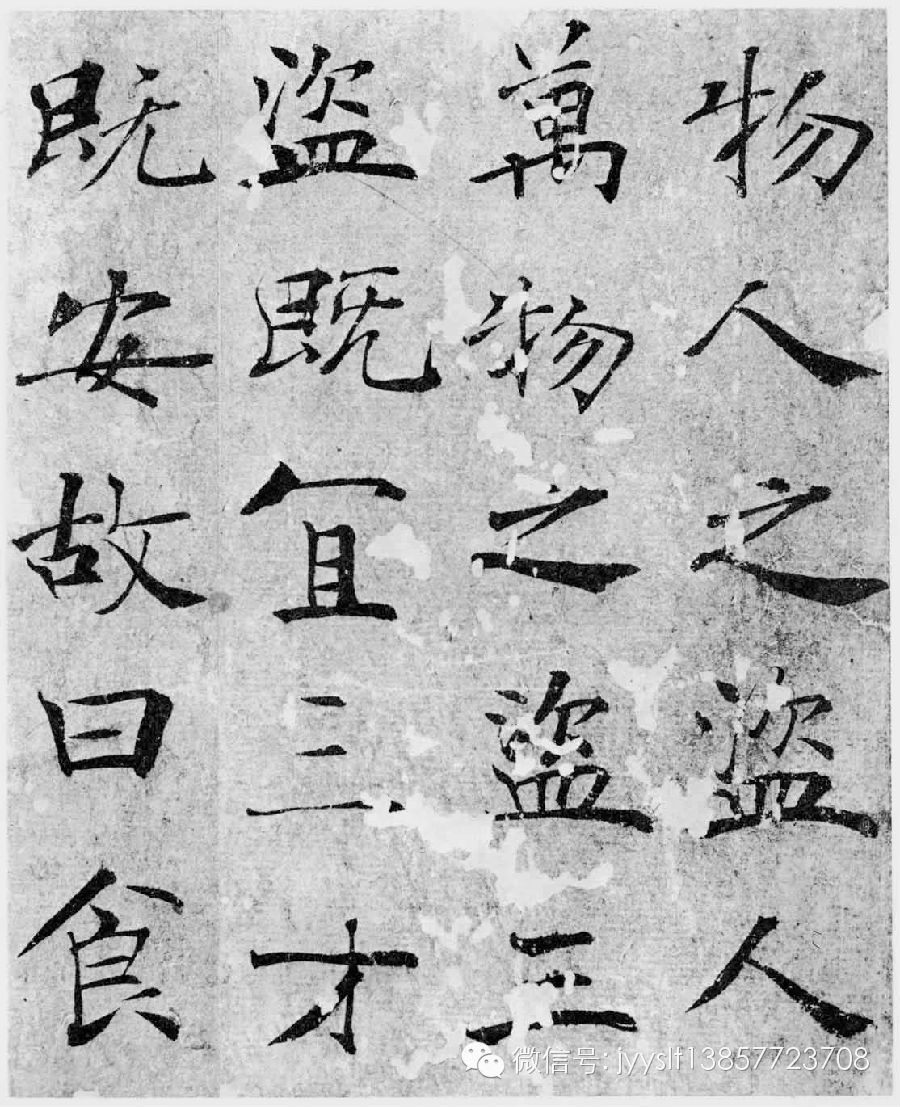 物人之盜人
萬物之盜三
盜既宜三才
既安故曰食
微信号: jyyslf13857723708